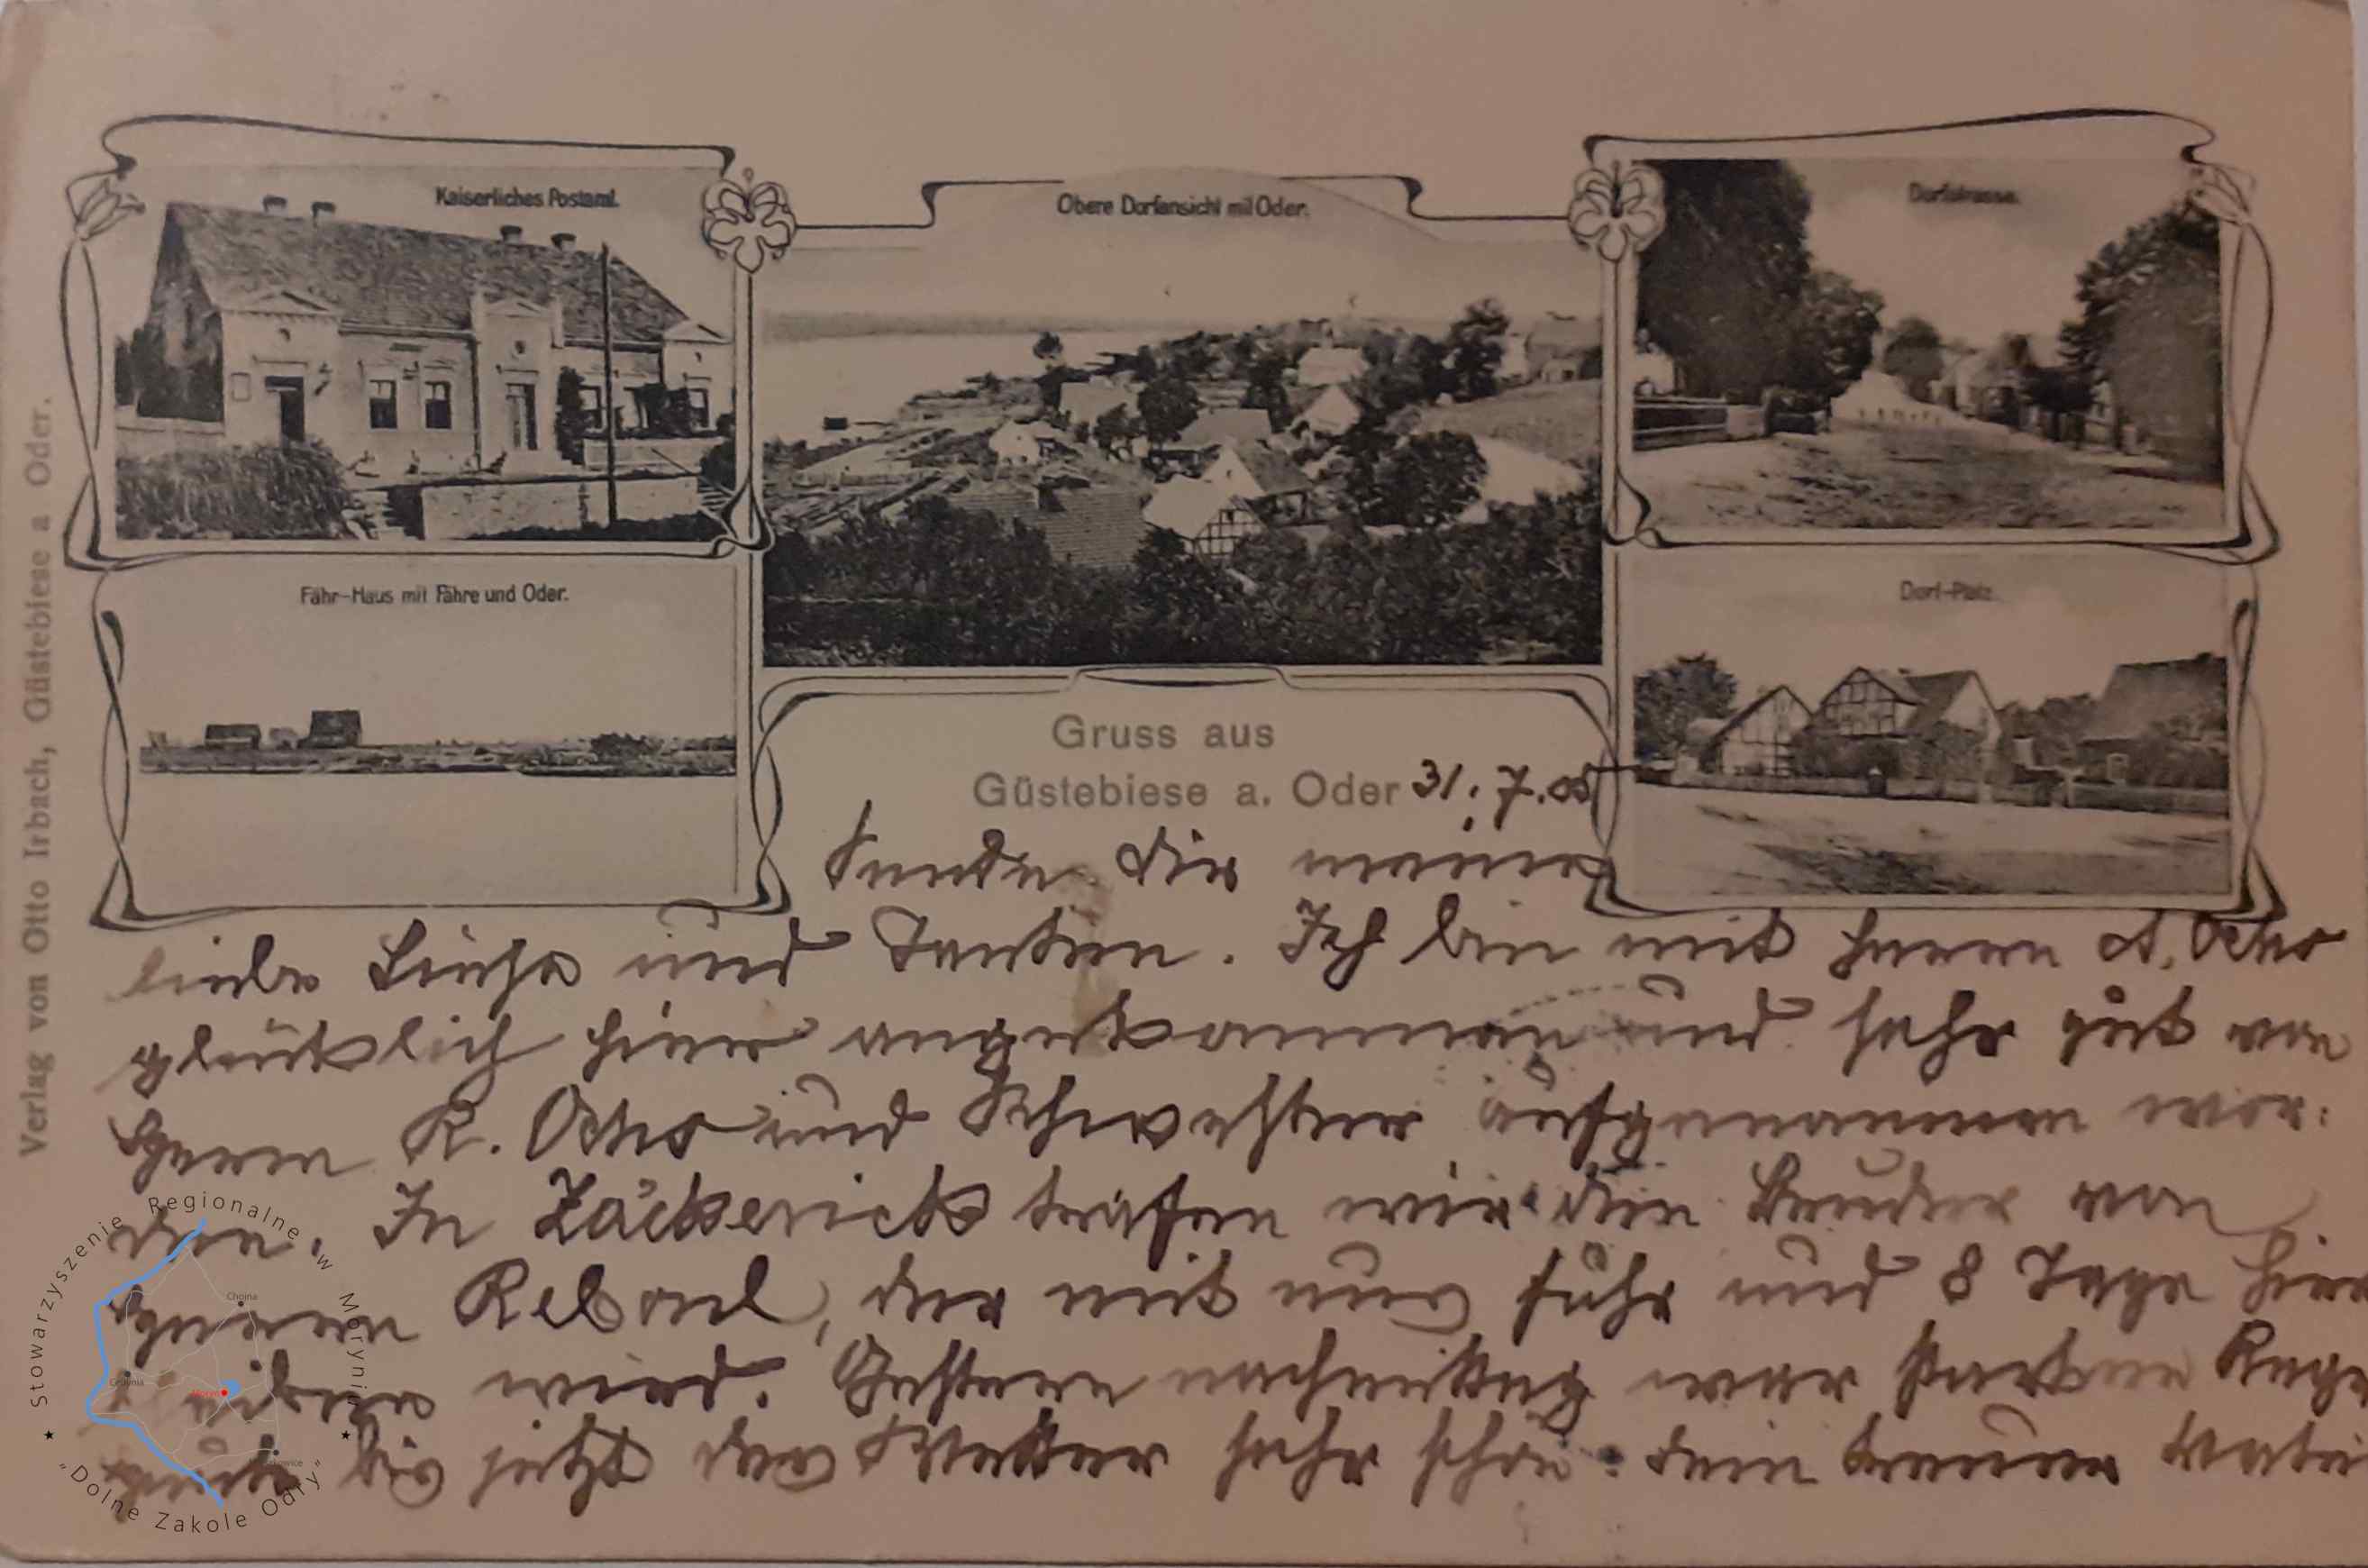 Kaiserliches Postamt.
Obere Dorfansicht mit Oder.
Dorfstrasse.
Fähr-Haus mit Fähre und Oder.
Dorf-Platz.
Verlag von Otto Irbach, Güstebiese a Oder.
Gruss aus
Güstebiese a. Oder 31. 7. 05
Sende Dir meine
liebe und Tanten. Ich bin mit Herrn A.
glücklich hier angekommen und sehr gut von
Herrn R. und Schwester aufgenommen wor:
den. In Zäckerick trafen wir den Bruder von
Herrn, der mit uns fuhr und 8 Tage hier
bleiben wird. Gestern nachmittag war starker Rege
heute bis jetzt das Wetter sehr schön. Dein treuer Vater
Stowarzyszenie Regionalne w Moryniu
"Dolne Zakole Odry"
Chojna
Gozdowice